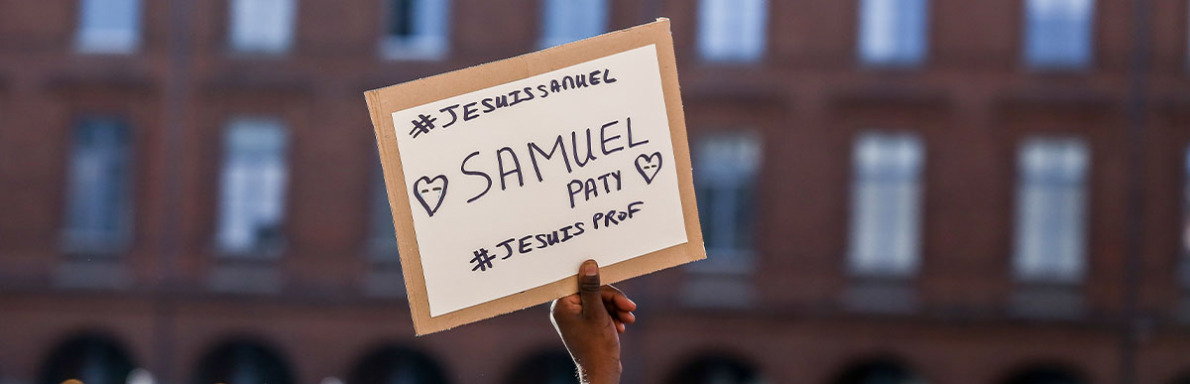 #JESUISSAMUEL
SAMUEL
PATY
#JESUIS PROF